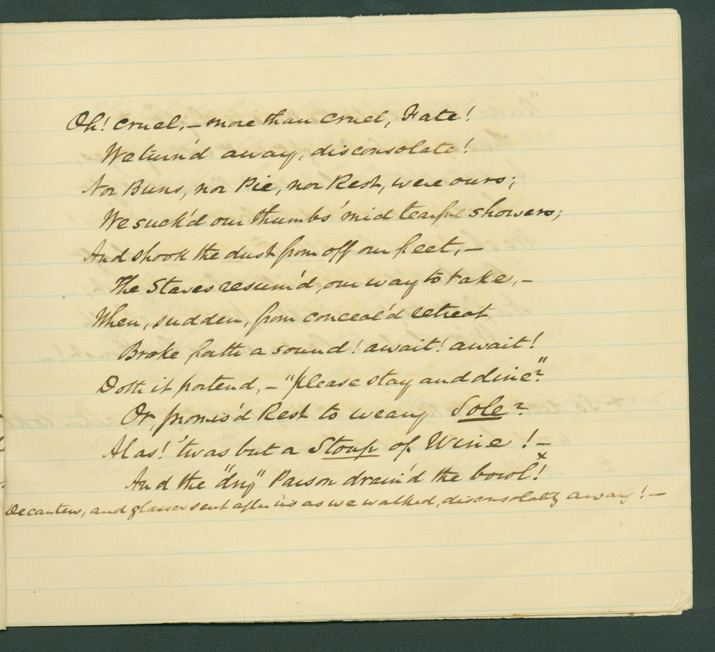 Oh! cruel, – more than cruel, Fate!
We turn'd away, disconsolate!
Nor Buns, nor Pie, nor Rest, were ours;
We suck'd our thumbs 'mid tearful showers;
And shook the dust from off our feet, –
The Staves resum'd, our way to take, –
When, sudden, from conceal'd retreat
Broke forth a sound! await! await!
Doth it portend, – "please stay and dine"?
Or, promis'd Rest to weary Sole?
Alas! 'twas but a Stoup of Wine! –
And the "dry" Parson drain'd the bowl! x
Decanters, and glasses sent after us as we walked, disconsolately away! –